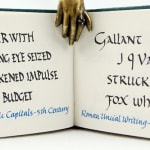 R WITH
NG EYE SEIZED
KENED IMPULSE
BUDGET
Capitals - 5th Century
GALLANT
J Q VA
STRUCK
FOX WH
Roman Uncial Writing -